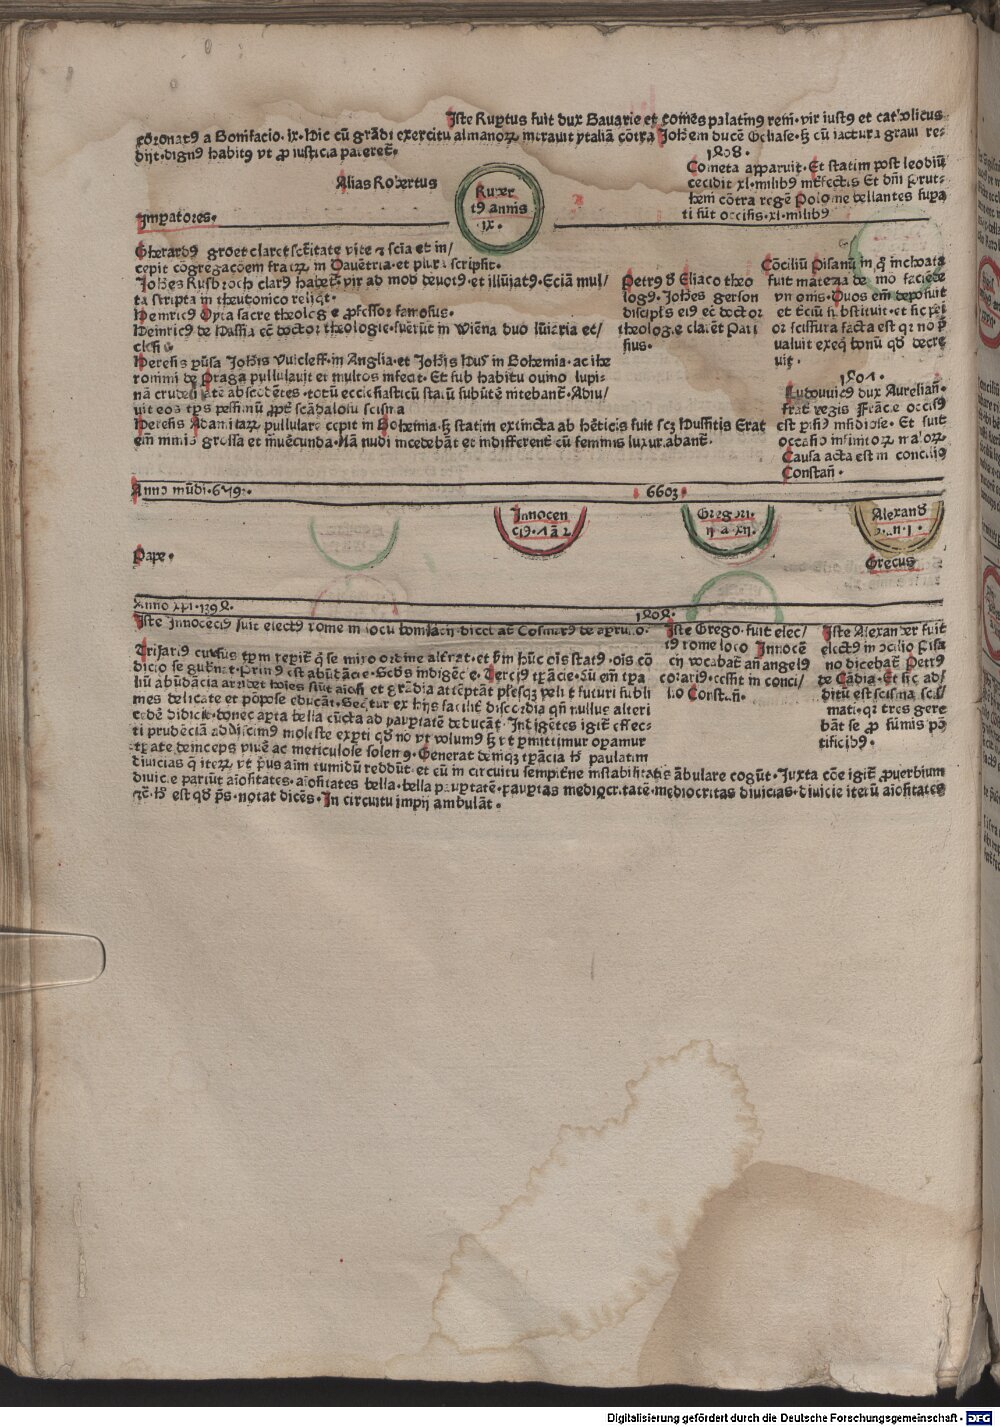 Iste Ruptus fuit dux Bauarie et comes palatinꝰ reni. vir iustꝰ et catholicus
coronatꝰ a Bonifacio. ix. Hic cū grādi exercitu almanoꝝ intrauit ytaliā cōtra Johēm ducē
iactura graui re-
dijt. dignꝰ habitꝰ vt ꝓ iusticia pateret.
Alias Robertus
Ruper
tꝰ annis
ix.
1408.
Cometa apparuit. Et statim post leodiū
cecidit xl. milibꝰ
contra regē Polonie bellantes supa
ti sūt occisis. xl. milibꝰ
Impatores.
Gherardꝰ groet claret sctitate vite ⁊ scia et in/
cepit cōgregacōem fratꝝ in Dauētria. et plura scripsit.
Johēs Rusbroch clarꝰ habet. vir ad modū deuotꝰ. et illūiatꝰ. Eciā mul/
ta scripta in theutonico reliqt.
Heinricꝰ Oyta sacre theologie ꝓfessor famosus.
Heinricꝰ de Hassia et doctor theologie. fuerūt in Wiēna duo luiaria et/
clesie
Heresis pūsa Johīs Wicleff. in Anglia. et Johīs Hus in Bohemia. ac ihe
ronimi de Praga pullulauit et multos infecit. Et sub habitu ouino lupi-
nā crudelitatē abscōdētes. totū ecclesiasticū statū subūtē nitebant. Adiu/
uit eos tps pessimū ꝓpt scādalosū scisma
Heresis Adamitaꝝ pullulare cepit in Bohemia. sʒ statim extincta ab heticis fuit scʒ Hussitis Erat
em nimis grossa et inuēcunda. Nā nudi incedebāt et indifferent cū feminis luxuriabant.
Petrꝰ d Eliaco theo
logꝰ. Johēs gerson
discipls eiꝰ et doctor
theologie claret Pari
sius.
Cōciliū Pisanū in q inchoata
fuit materia de mō faciēde
vnionis. Duos em deposuit
et tciū substituit. et sic pei
or scissura facta est qr no p
ualuit exeq bonū qd decre
uit.
1407.
Ludouicꝰ dux Aurelian.
frat regis Frācie occisꝰ
est pfide insidiose. Et fuit
occasio infinitoꝝ maloꝝ.
Causa acta est in concilio
Constan.
Anno mūdi. 6791.
6603
Innocen
ciꝰ. 7 ā 2
Gregori.
ij a xij.
Alexand
Grecus
Pape.
Anno xpi. 1392.
1404.
Iste Innocēciꝰ fuit electꝰ rome in locū bonifacij. dicebat Cosmatꝰ
Iste Grego. fuit elec/
tꝰ rome loco Innocē
cij vocabat an angelꝰ
corariꝰ. cessit in conci/
lio Constan.
Iste Alexander fuit
electꝰ in cōcilio pisa
no dicebat Petrꝰ
de Cādia. Et sic ad/
ditū est scisma scis/
mati. qr tres gere
bāt se ꝓ sūmis pō
tificibꝰ.
Trifariꝰ cursus tpm repit q se miro ordine alt̄nāt. et ōm hūc oīs statꝰ. oīs cō
dicio se gubnat. Primꝰ est abūdācie. Scdꝰ indigēcie. Terciꝰ tpācie. Cū em tpa
liū abūdācia
et grādia attēptāt plesqʒ velut futuri subli
mes delicate et pōpose educāt. Seqtur ex hijs facilit discordia qn nullus alteri
cedē didicit. donec aperta bella cūcta ad paupertatē deducāt. Indigētes igit effec-
ti prudēciā addiscimꝰ moleste expti qd no vt volumꝰ sʒ vt pmittimur opamur
tpate deinceps viuē ac meticulose solens. Generat deniqʒ tpācia
paulatim
diuicias q iteꝝ vt pus aim tumidū reddūt. et cū in circuitu sempiterne instabilitatis ābulare cogūt. Iuxta cōe igit ꝓuerbium
diuicie pariūt aiositates. aiositates bella. bella paupertatē. paupertas mediocritatē. mediocritas diuicias. diuicie iterū aiositates
est qd ps. notat dicēs. In circuitu impij ambulāt.
Digitalisierung gefördert durch die Deutsche Forschungsgemeinschaft - DFG